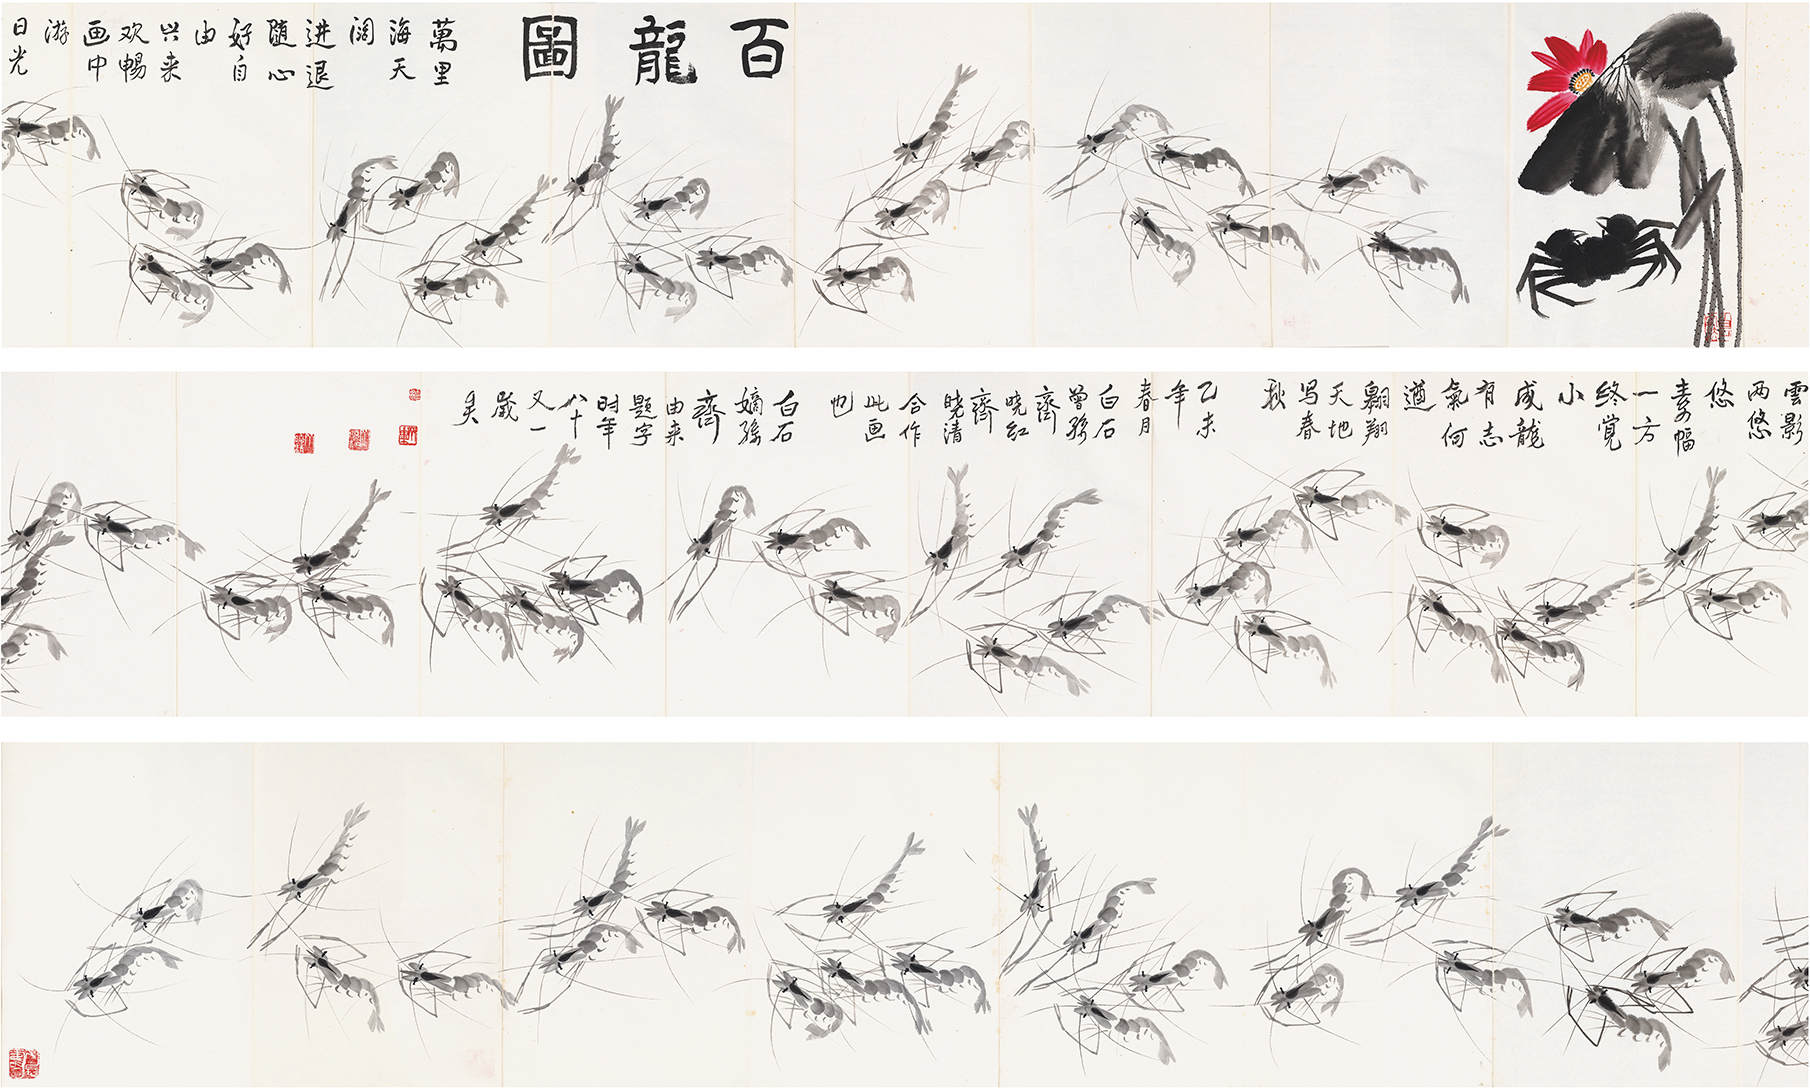 百龍圖
萬里
海天
闊
进退
隨心
好自
由
兴来
欢暢
画中
游
日光
雲影
两悠
悠
素幅
一方
終覺
小
成龍
有志
氣何
遒
翱翔
天地
写春
秋
乙未
年
春月
白石
曾孫
齊
晓红
齊
晓清
合作
此画
也
白石
嫡孫
齊
由来
题字
时年
八十
又一
歲
矣